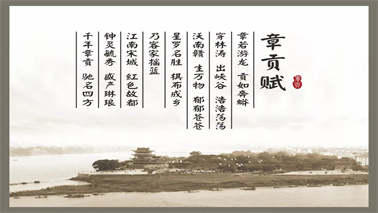 章贡赋
章若游龙 贡如奔螭
穿林涛 出峡谷 浩浩荡荡
沃南赣 生万物 郁郁苍苍
星罗名胜 棋布成乡
乃客家摇篮
江南宋城 红色故都
钟灵毓秀 盛产琳琅
千年章贡 驰名四方